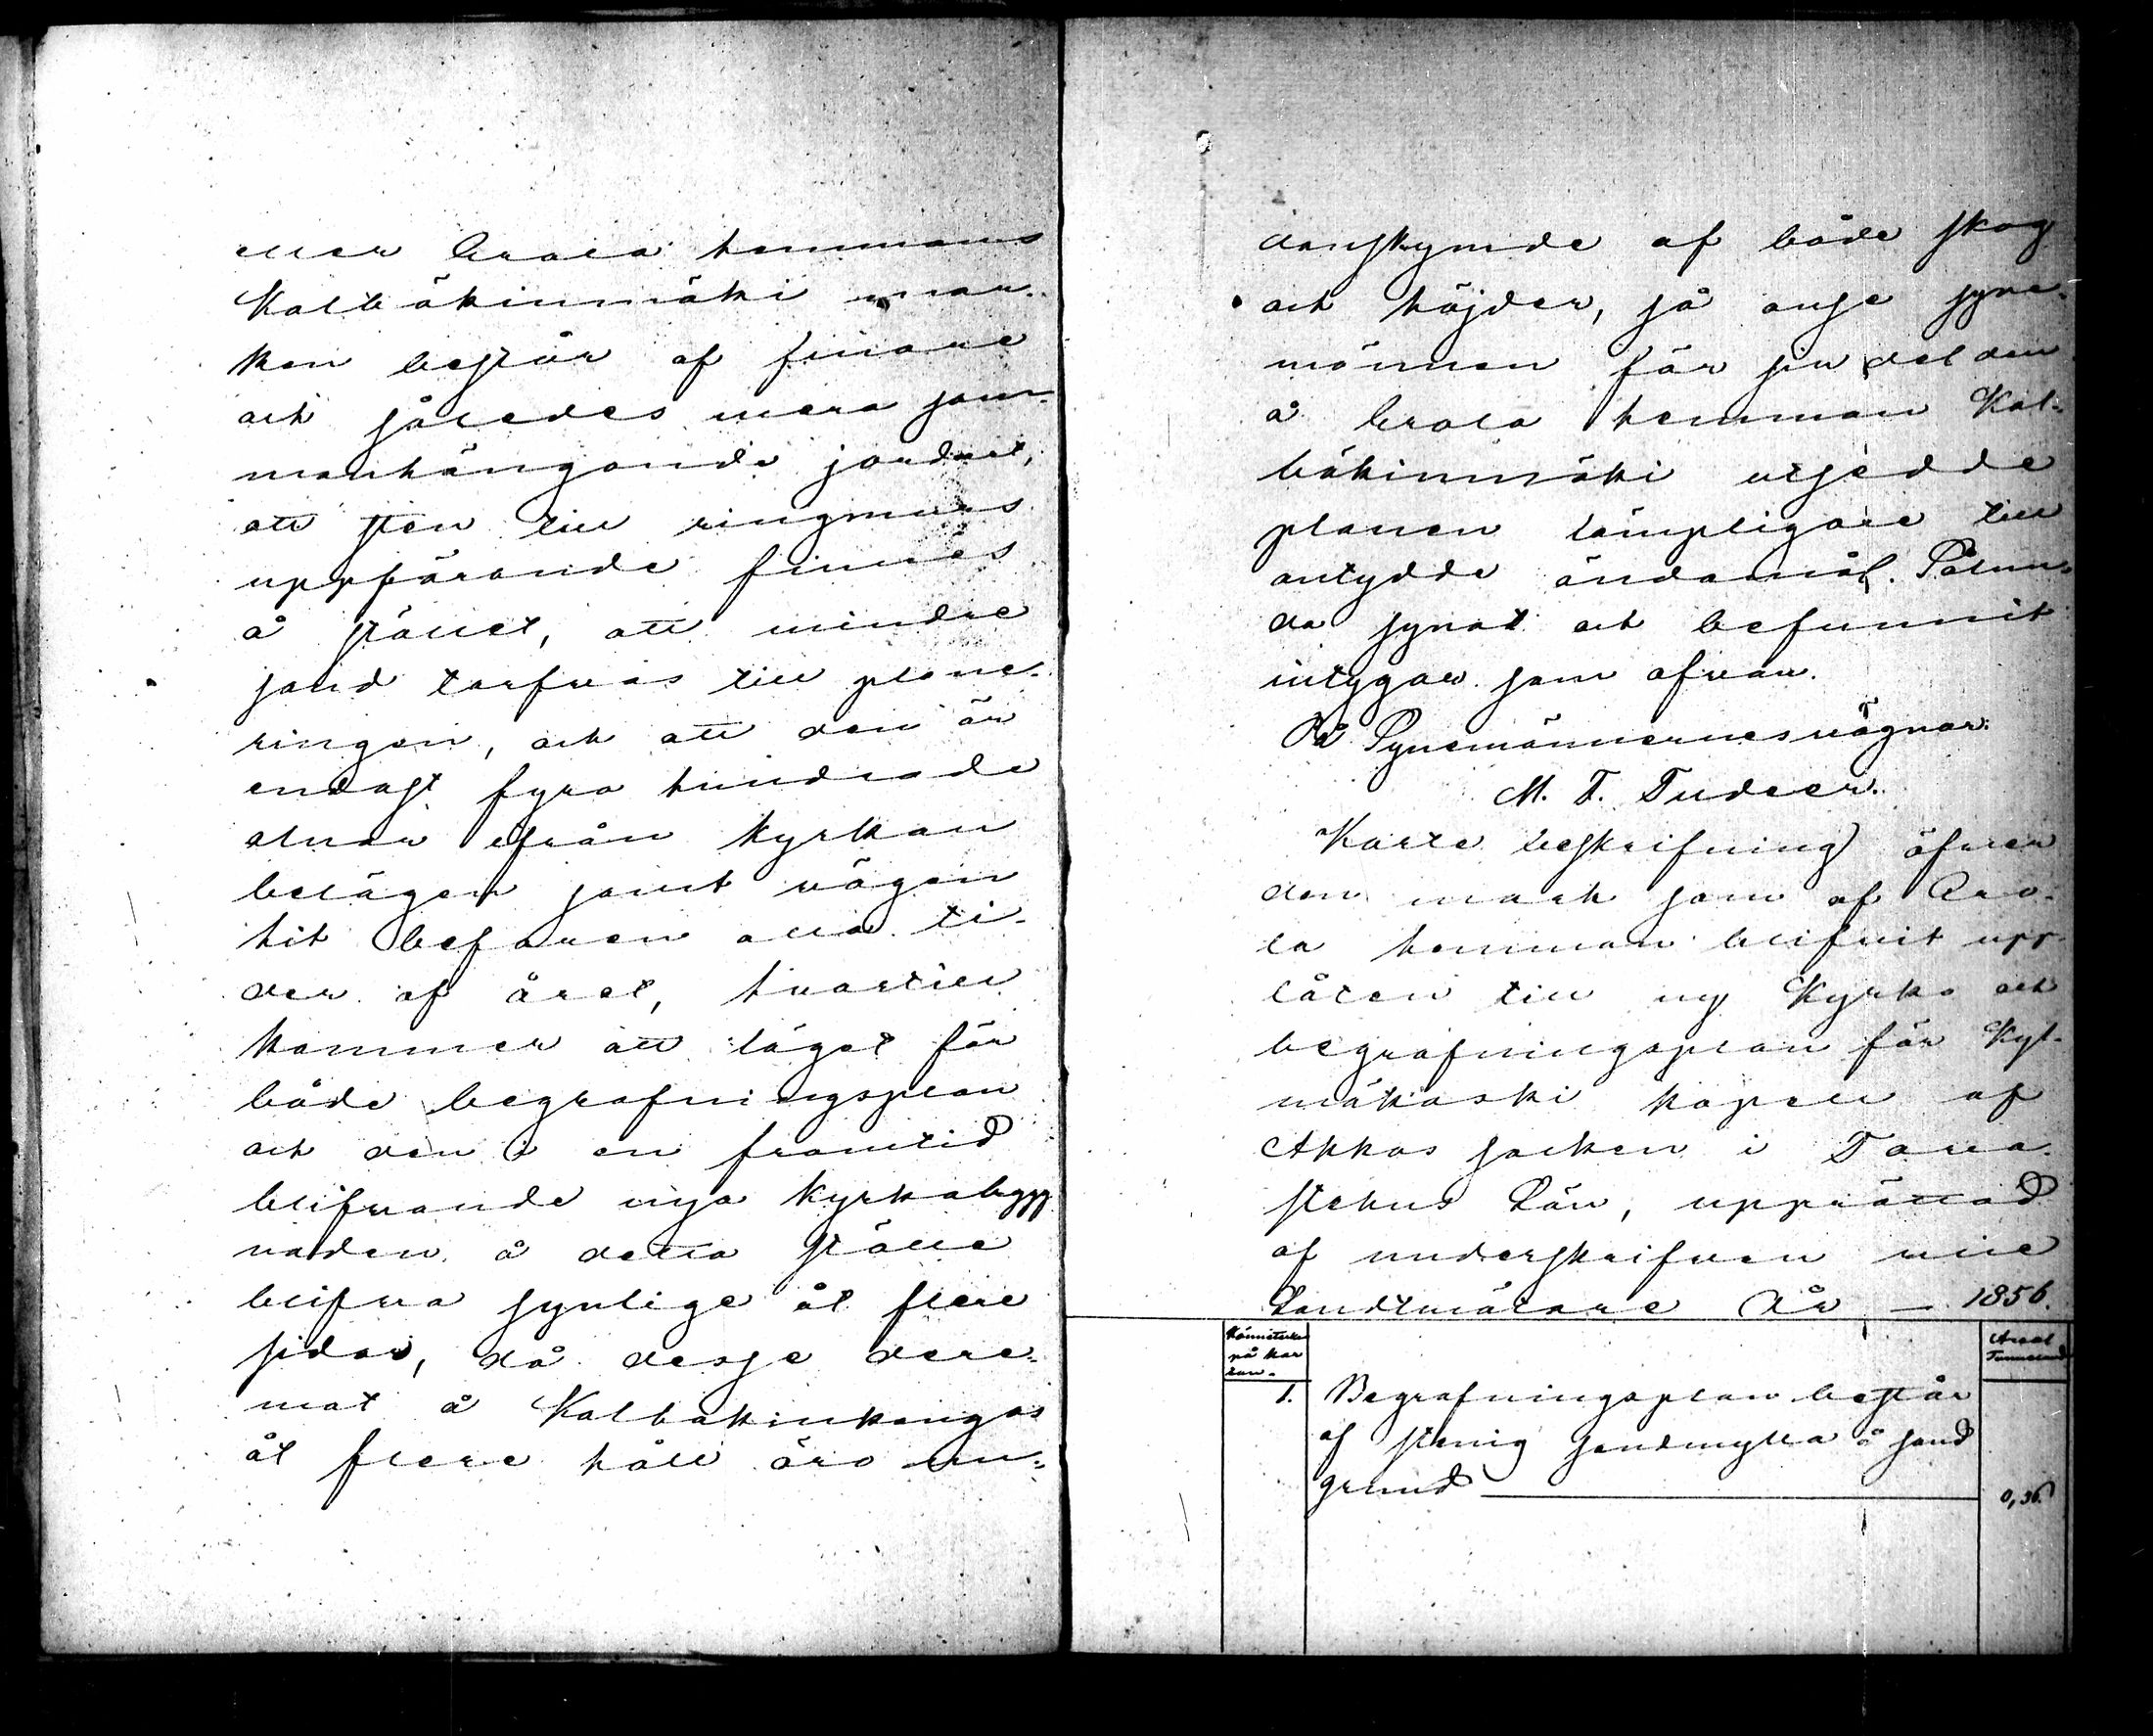 eller Arola hemmans
Kalbäkinmäki mar-
ken består af finare
och således mera sam-
manhängande jordart,
att sten till ringmurs
uppförande finnes
å stället, att mindre
sand tarfvas till plane-
ringen, och att den är
endast fyra hundrade
alnar ifrån kyrkan
belägen samt vägen
hit befaren alla ti-
der af året, hvartill
kommer att läget för
både begrafningsplan
och den i en framtid
blifvande nya kyrkobygg
naden å detta ställe
blifva synlige åt flere
sidor, då desse dere-
mot å Kalbakinkangas
åt flere håll äro un-
danskymde af både skog
och höjder, så anse syne-
männen för sin del den
å Arola hemman Kal-
bäkinmäki utsedde
planen lämpligare till
antydde ändamål. Sålun-
da synat och befunnit
intygar som ofvan.
På Synemännernes vägnar:
M. T. Tudeer.
Karte beskrifning öfver
den mark som af Aro-
la hemman blifvit upp-
låten till ny Kyrko och
begrafningsplan för Kyl-
mäkoski kapell af
Akkas socken i Tava-
stehus Län, upprättad
af underskrifven vice
Landtmätare År — 1856.
Kännetecken
på kar
tan.
Areal
Tunneland
1. Begrafningsplan består
af stenig sandmylla å sand
grund — 0,36.